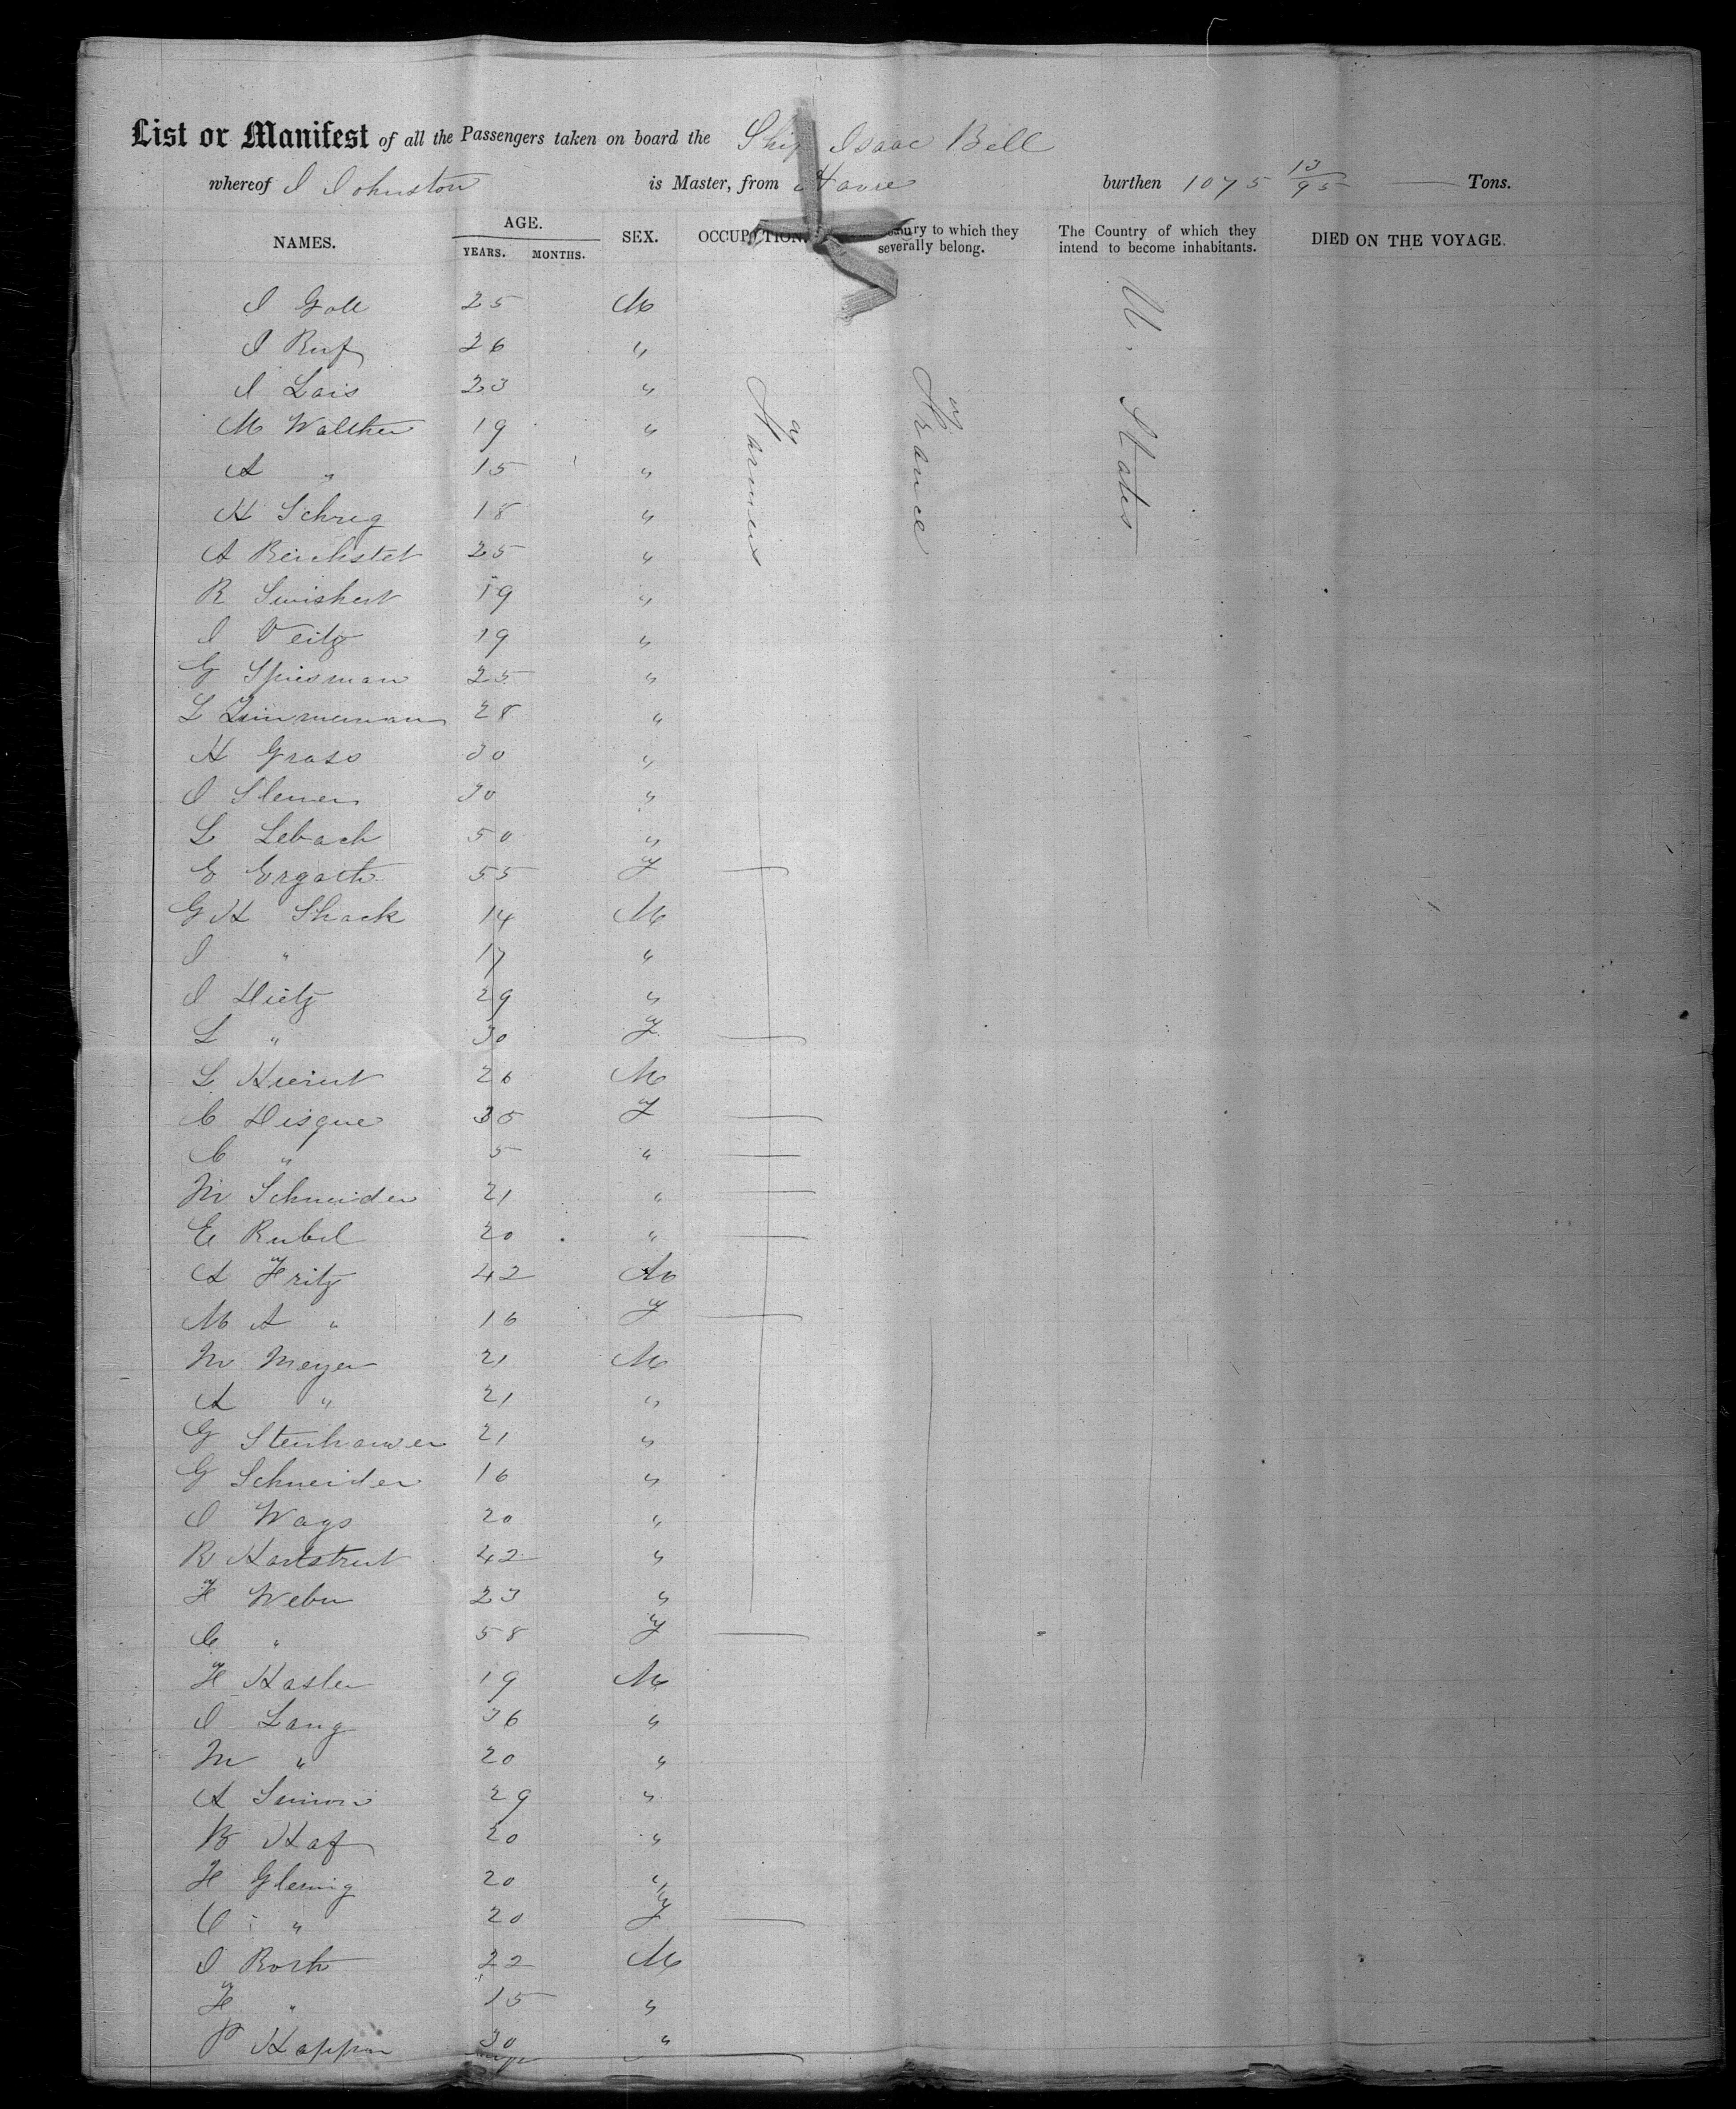 List or Manifest of all the Passengers taken on board the Ship Isaac Bell
whereof I Johnston is Master, from Havre burthen 1075 13/95 Tons.
NAMES. AGE. YEARS. MONTHS. SEX. OCCUPATION. Country to which they severally belong. The Country of which they intend to become inhabitants. DIED ON THE VOYAGE.
I Goll 25 M Farmers France U. States
I Ruf 26 "
I Lais 23 "
M Walther 19 "
A " 15 "
H Schreg 18 "
A Reichstet 25 "
R 19 "
I Veitz 19 "
G Spiesman 25 "
L Zimmerman 28 "
H Grass 30 "
I 30 "
L Lebach 50 "
E Ergoth 55 F —
G H Shack 14 M
I " 17 "
I Dietz 29 "
L " 30 F —
L 26 M
C Disque 35 F —
C " 5 " —
M Schneider 21 " —
E Rubel 20 " —
A Fritz 42 M
M A " 16 F —
M Meyer 21 M
A " 21 "
G Stenhauser 21 "
G Schneider 16 "
I Wags 20 "
R Hartstrut 42 "
F Weber 23 "
C " 58 F —
F Hasler 19 M
I Lang 36 "
M " 20 "
A Simon 29 "
B Haf 20 "
F Glernig 20 "
C " 20 F —
I Roth 22 M
F " 15 "
P Happer 30 "